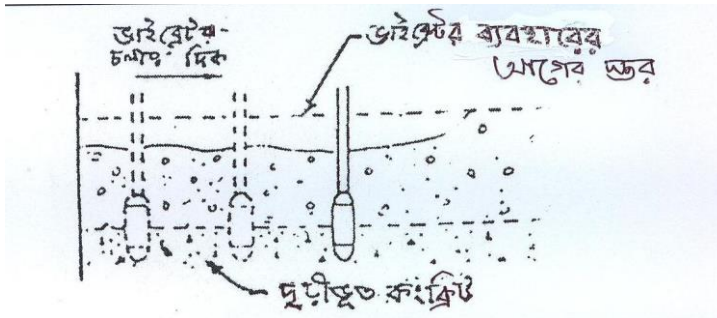 ভাইব্রেটর-
চলার দিক
ভাইব্রেটর ব্যবহারের
আগের স্তর
দৃঢ়ীভূত কংক্রিট